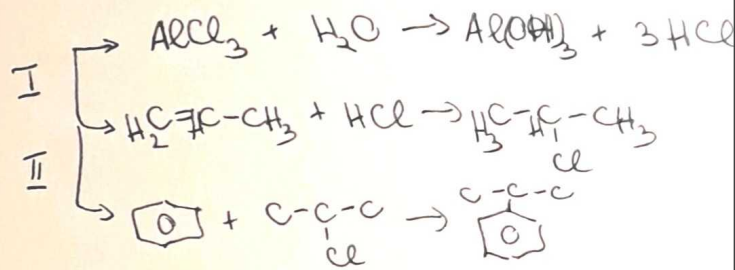 I
AlCl₃ + H₂O → Al(OH)₃ + 3HCl
H₂C=HC-CH₃ + HCl → H₃C-HC-CH₃
Cl
II
C-C-C
+ C-C-C →
Cl